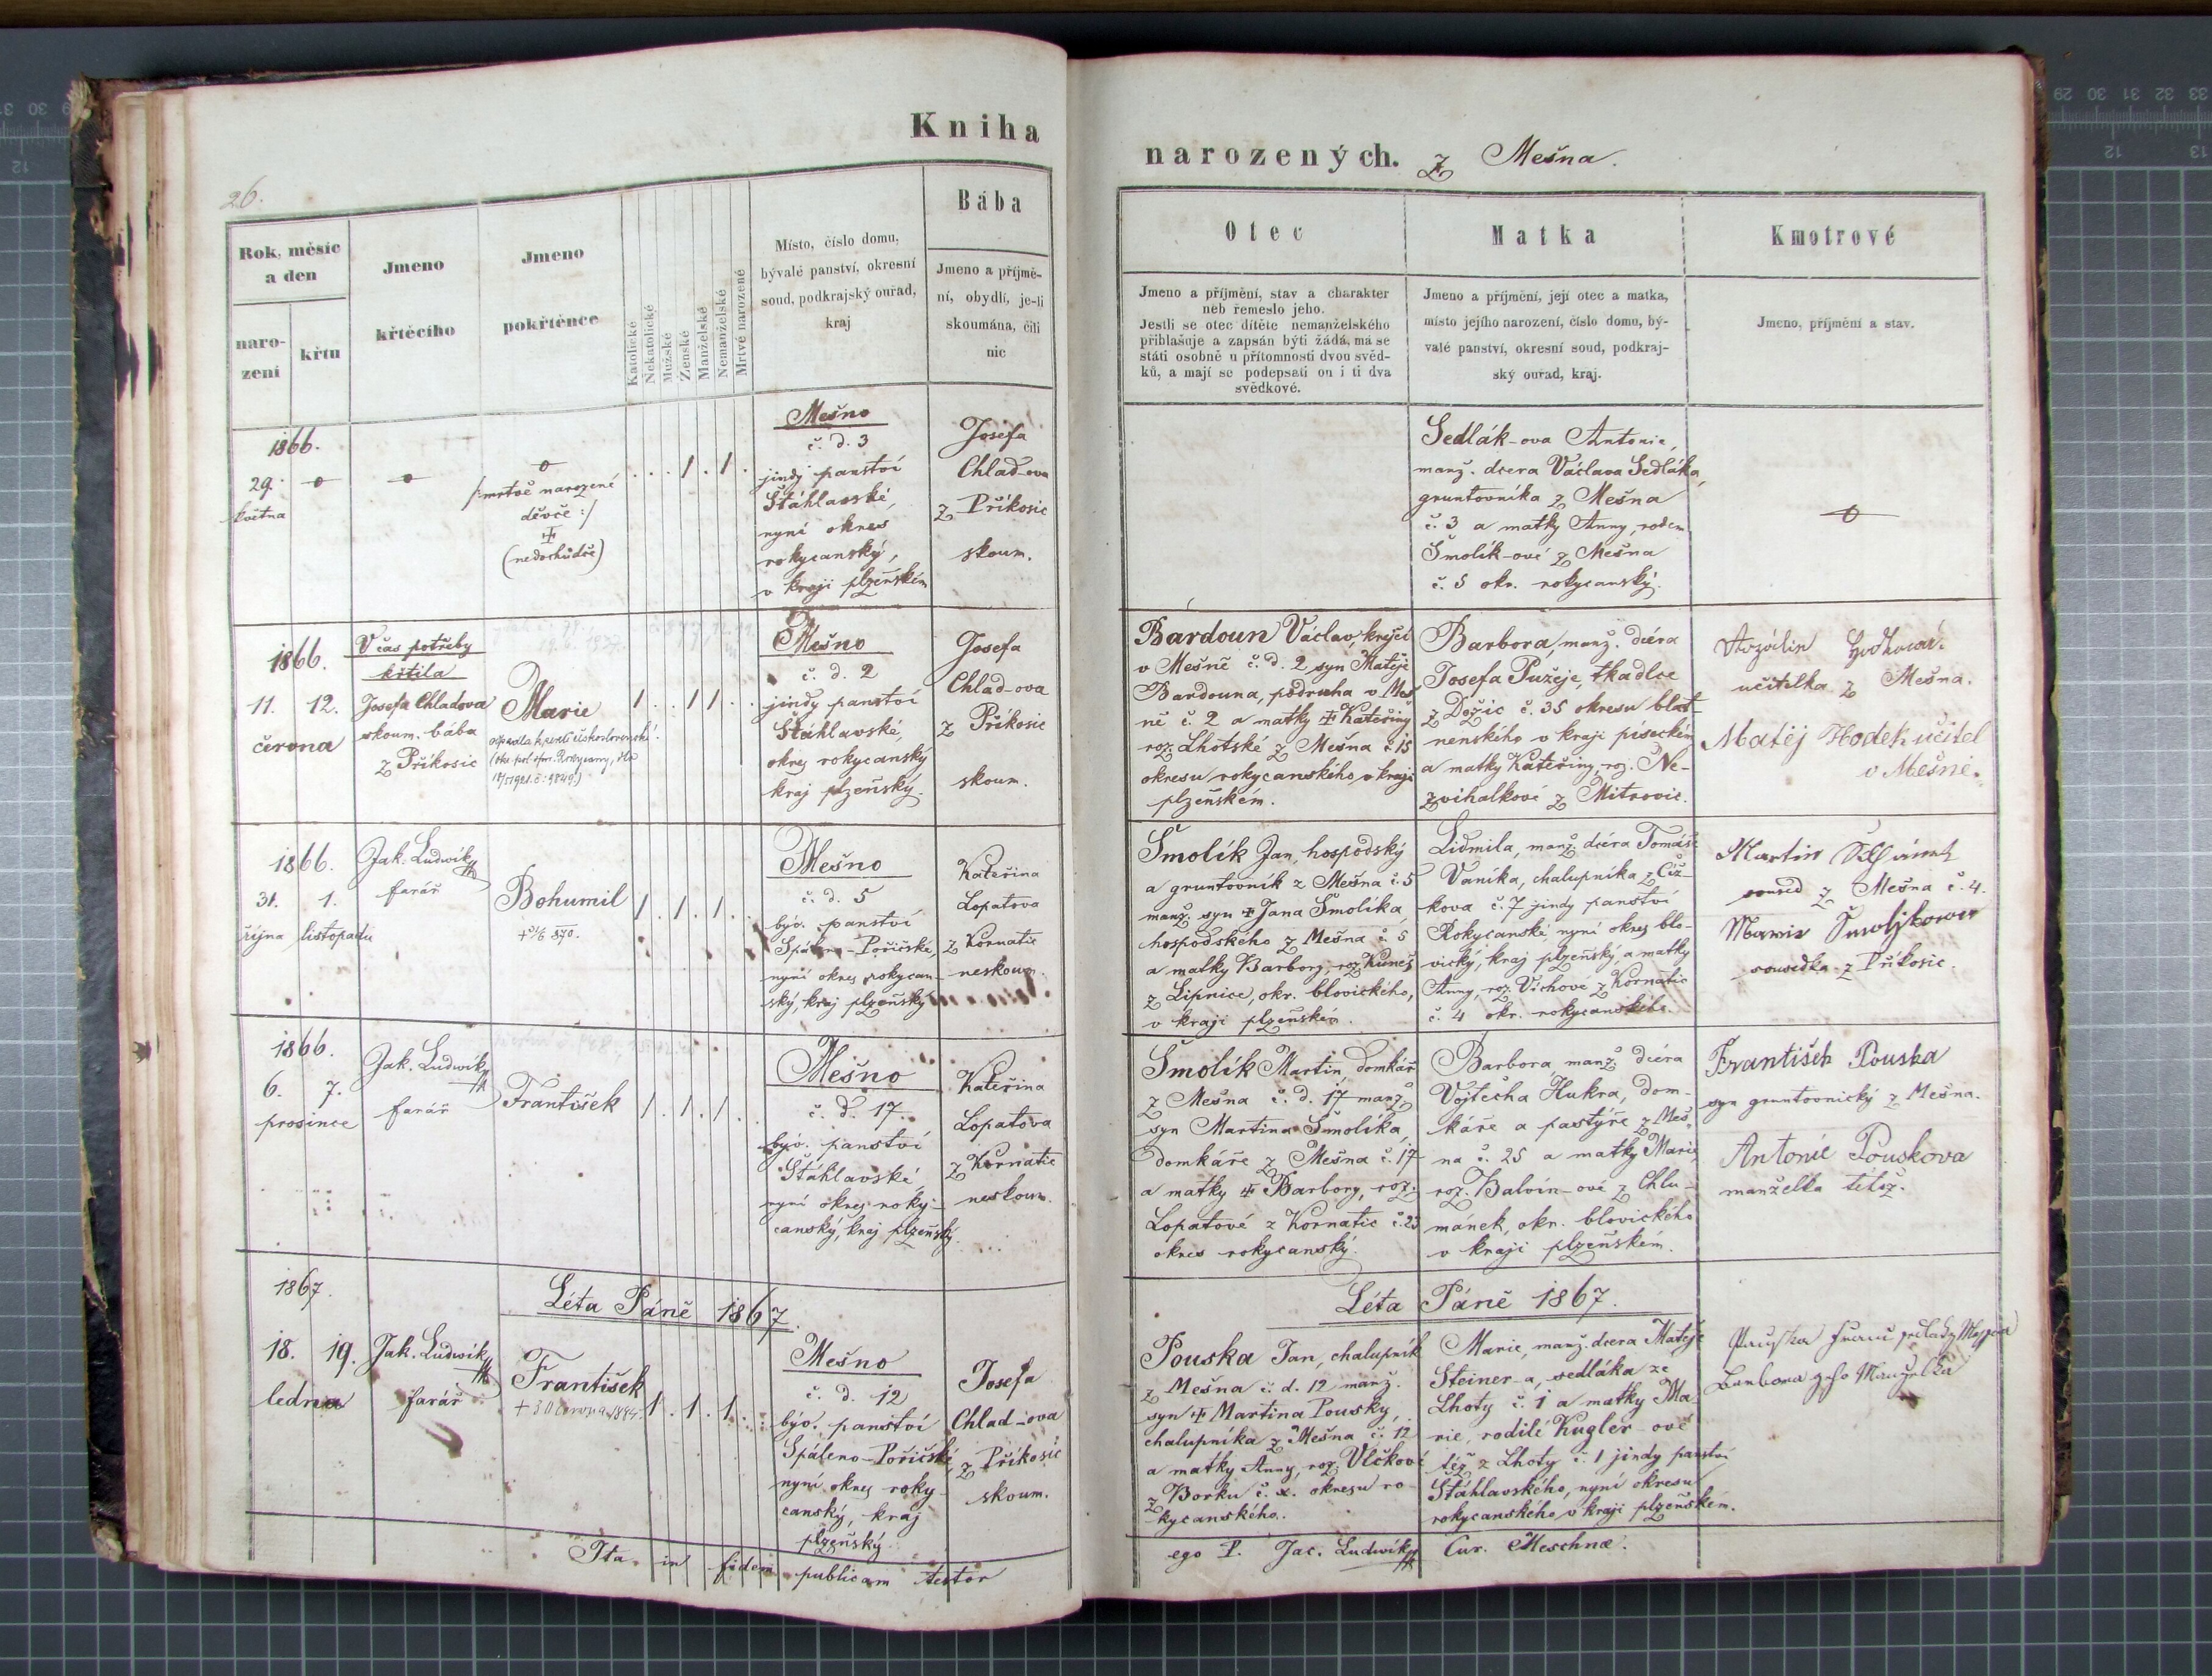 Kniha
narozených. z Mešna.
26.
Rok, měsíc
a den
naro-
zení
křtu
Jmeno
křtěcího
Jmeno
pokřtěnce
Katolické
Nekatolické
Mužské
Ženské
Manželské
Nemanželské
Mrtvě narozené
Místo, číslo domu,
bývalé panství, okresní
soud, podkrajský ouřad,
kraj
Bába
Jmeno a příjmě-
ní, obydlí, je-li
skoumána, čili
nic
Otec
Jmeno a příjmění, stav a charakter
neb řemeslo jeho.
Jestli se otec dítěte nemanželského
přihlašuje a zapsán býti žádá, má se
státi osobně u přítomnosti dvou svěd-
ků, a mají se podepsati on i ti dva
svědkové.
Matka
Jmeno a příjmění, její otec a matka,
místo jejího narození, číslo domu, bý-
valé panství, okresní soud, podkraj-
ský ouřad, kraj.
Kmotrové
Jmeno, příjmění a stav.
1866.
29.
května
/:mrtvě narozené
děvče:/
(nedochůdče)
. . . 1 . 1 .
Mešno
č. d. 3
jindy panství
Šťáhlavské,
nyní okres
rokycanský,
v kraji plzeňském
Josefa
Chlad-ova
z Příkosic
skoum.
Sedlák-ova Antonie,
manž. dcera Václava Sedláka,
gruntovníka z Mešna
č. 3 a matky Anny, rodem
Smolík-ové z Mešna
č. 5 okr. rokycanský.
1866.
11. 12.
června
V čas potřeby
křtila
Josefa Chladova
skoum. bába
z Příkosic
Marie
1 . . 1 1 . .
Mešno
č. d. 2
jindy panství
Šťáhlavské,
okres rokycanský
kraj plzeňský.
Josefa
Chlad-ova
z Příkosic
skoum.
Bardoun Václav, krejčí
v Mešně č. d. 2 syn Matěje
Bardouna, podruha v Meš-
ně č. 2 a matky Kateřiny
roz. Lhotské z Mešna č. 15
okresu rokycanského, v kraji
plzeňském.
Barbora, manž. dcéra
Josefa Pužeje, tkadlce
z Dožic č. 35 okresu blat-
nenského v kraji píseckém
a matky Kateřiny, roz. Ne-
zvihalkové z Mitrovic.
učitelka z Mešna.
Matěj Hodek učitel
v Mešně.
1866.
31. 1.
října listopadu
Jak. Ludwík
farář
Bohumil
1 . 1 . 1 . .
Mešno
č. d. 5
býv. panství
Spáleno-Poříčské,
nyní okres rokycan-
ský, kraj plzeňský
Kateřina
Lopatova
z Kornatic
neskoum.
Smolík Jan, hospodský
a gruntovník z Mešna č. 5
manž. syn Jana Smolíka,
hospodského z Mešna č. 5
a matky Barbory, roz. Kuneš
z Lipnice, okr. blovického,
v kraji plzeňském.
Lidmila, manž. dcéra Tomáše
Vaníka, chalupníka z Číž-
kova č. 7 jindy panství
Rokycanské, nyní okres blo-
vický, kraj plzeňský, a matky
Anny, roz. Víchové z Kornatic
č. 4 okr. rokycanského.
Martin
soused z Mešna č. 4.
sousedka z Příkosic.
1866.
6. 7.
prosince
Jak. Ludwík
farář
František
1 . 1 . 1 .
Mešno
č. d. 17.
býv. panství
Šťáhlavské,
nyní okres roky-
canský, kraj plzeňský.
Kateřina
Lopatova
z Kornatic
neskoum.
Smolík Martin domkář
z Mešna č. d. 17 manž.
syn Martina Smolíka,
domkáře z Mešna č. 17
a matky Barbory, roz.
Lopatové z Kornatic č. 23
okres rokycanský.
Barbora manž. dcéra
Vojtěcha Hukra, dom-
káře a pastýře z Meš-
na č. 25 a matky Marie,
roz. Balvín-ové z Chlu-
mánek, okr. blovického
v kraji plzeňském.
František Pouska
syn gruntovnický z Mešna.
Antonie Pouskova
manželka téhož.
1867.
Léta Páně 1867.
Léta Páně 1867.
18. 19.
ledna
Jak. Ludwík
farář
František
+ 30 června 1894.
1 . 1 . 1 . .
Mešno
č. d. 12
býv. panství
Spáleno-Poříčské,
nyní okres roky-
canský, kraj
plzeňský.
Josefa
Chlad-ova
z Příkosic
skoum.
Pouska Jan, chalupník
z Mešna č. d. 12 manž.
syn Martina Pousky,
chalupníka z Mešna č. 12
a matky Anny, roz. Vlčkové
z Borku č. x. okresu ro-
kycanského.
Marie, manž. dcera Matěje
Steiner-a, sedláka ze
Lhoty č. 1 a matky Ma-
rie, rodilé Kugler-ové
též z Lhoty č. 1 jindy panství
Šťáhlavského, nyní okresu
rokycanského v kraji plzeňském.
Barbora geho Manželka
Ita in fidem publicam testor
ego P. Jac. Ludwík Cur. Meschnæ.